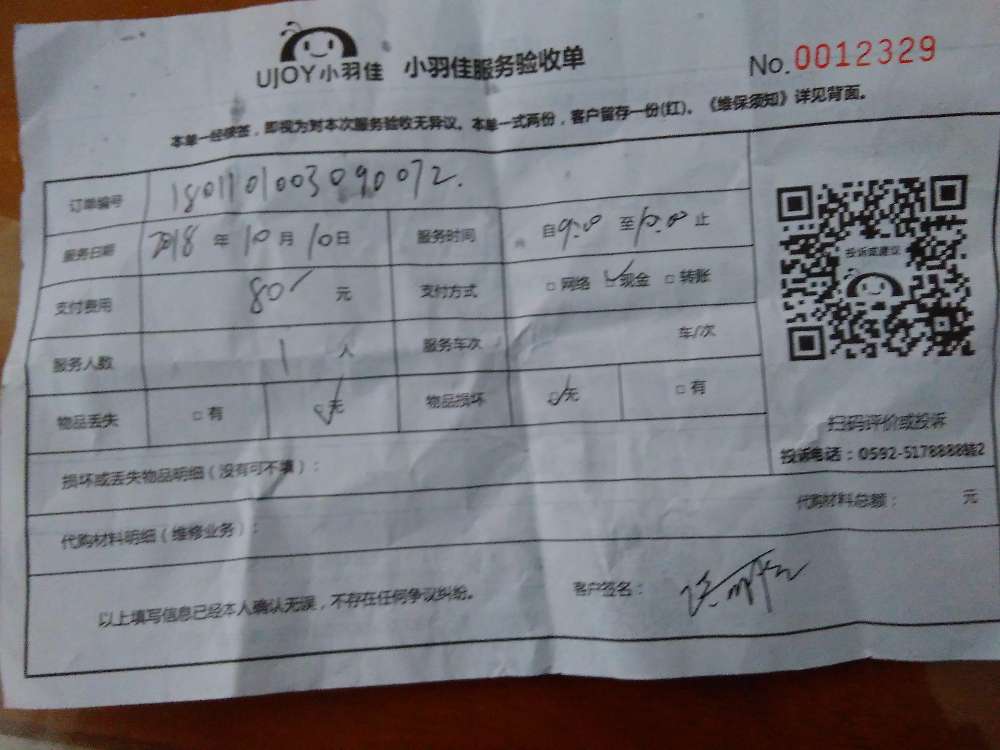 UJOY小羽佳 小羽佳服务验收单 No.0012329
本单一经核签，即视为对本次服务验收无异议。本单一式两份，客户留存一份(红)。《维保须知》详见背面。
订单编号 1801101003090072.
服务日期 2018 年 10 月 10 日 服务时间 自9:00 至10:00 止
支付费用 80 元 支付方式 □ 网络 ☑ 现金 □ 转账
服务人数 1 人 服务车次 车/次
物品丢失 □ 有 ☑ 无 物品损坏 ☑ 无 □ 有
投诉或建议
扫码评价或投诉
投诉电话：0592-5178888转2
损坏或丢失物品明细（没有可不填）：
代购材料明细（维修业务）： 代购材料总额： 元
以上填写信息已经本人确认无误，不存在任何争议纠纷。 客户签名：